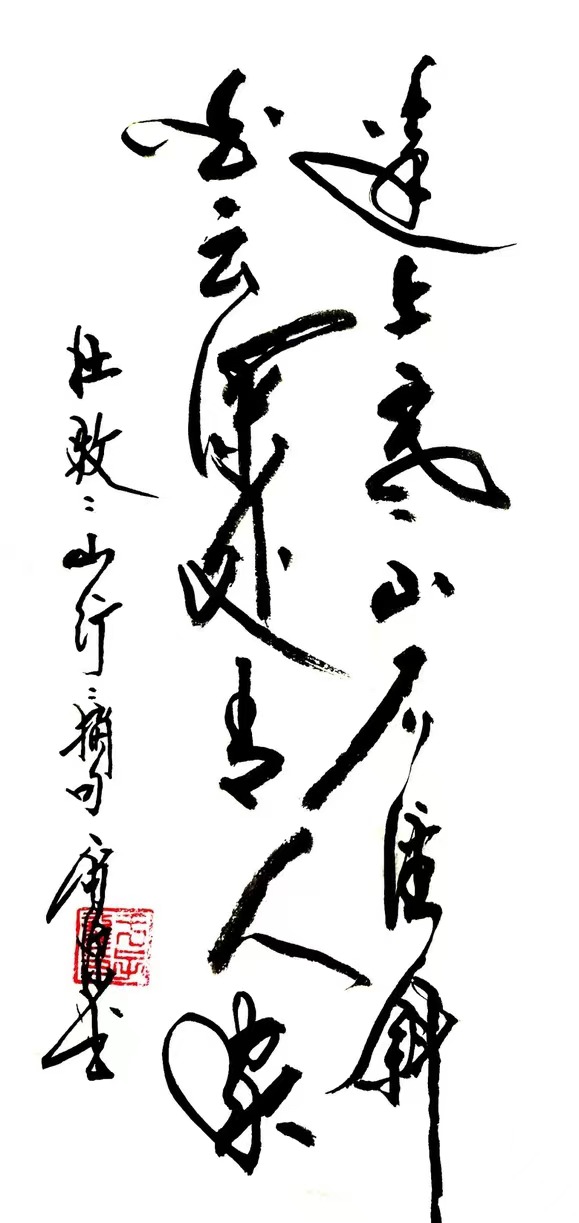 遠上寒山石径斜
白云深处有人家
杜牧：山行：摘句 书